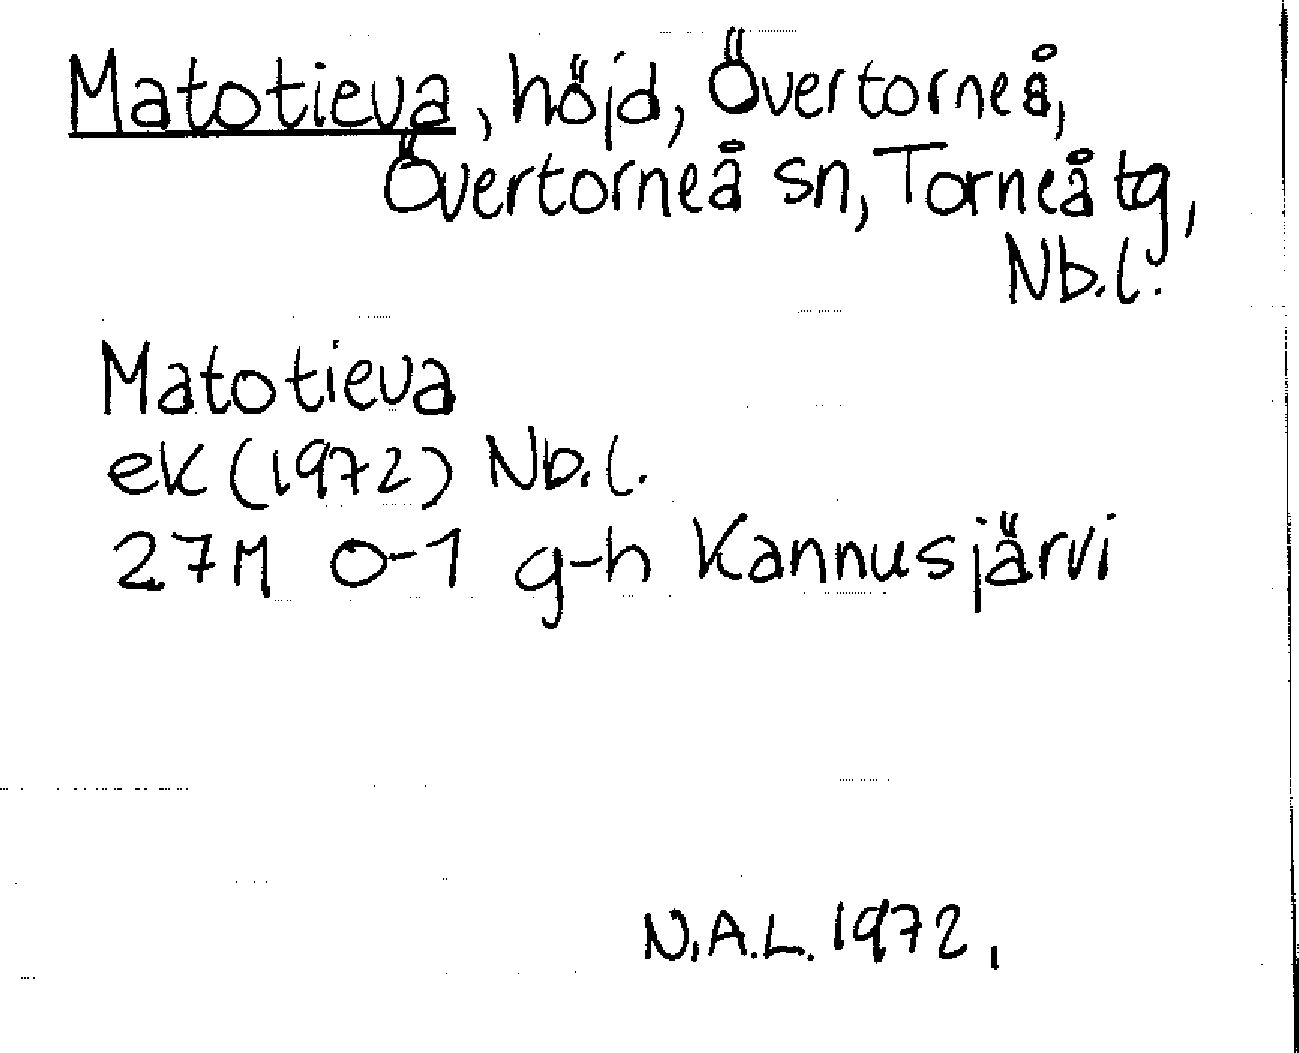 Matotieva, höjd, Övertorneå,
Övertorneå sn, Torneå tg,
Nb.l.
Matotieva
ek (1972) Nb.l.
27M 0-1 g-h Kannusjärvi
N.A.L. 1972.